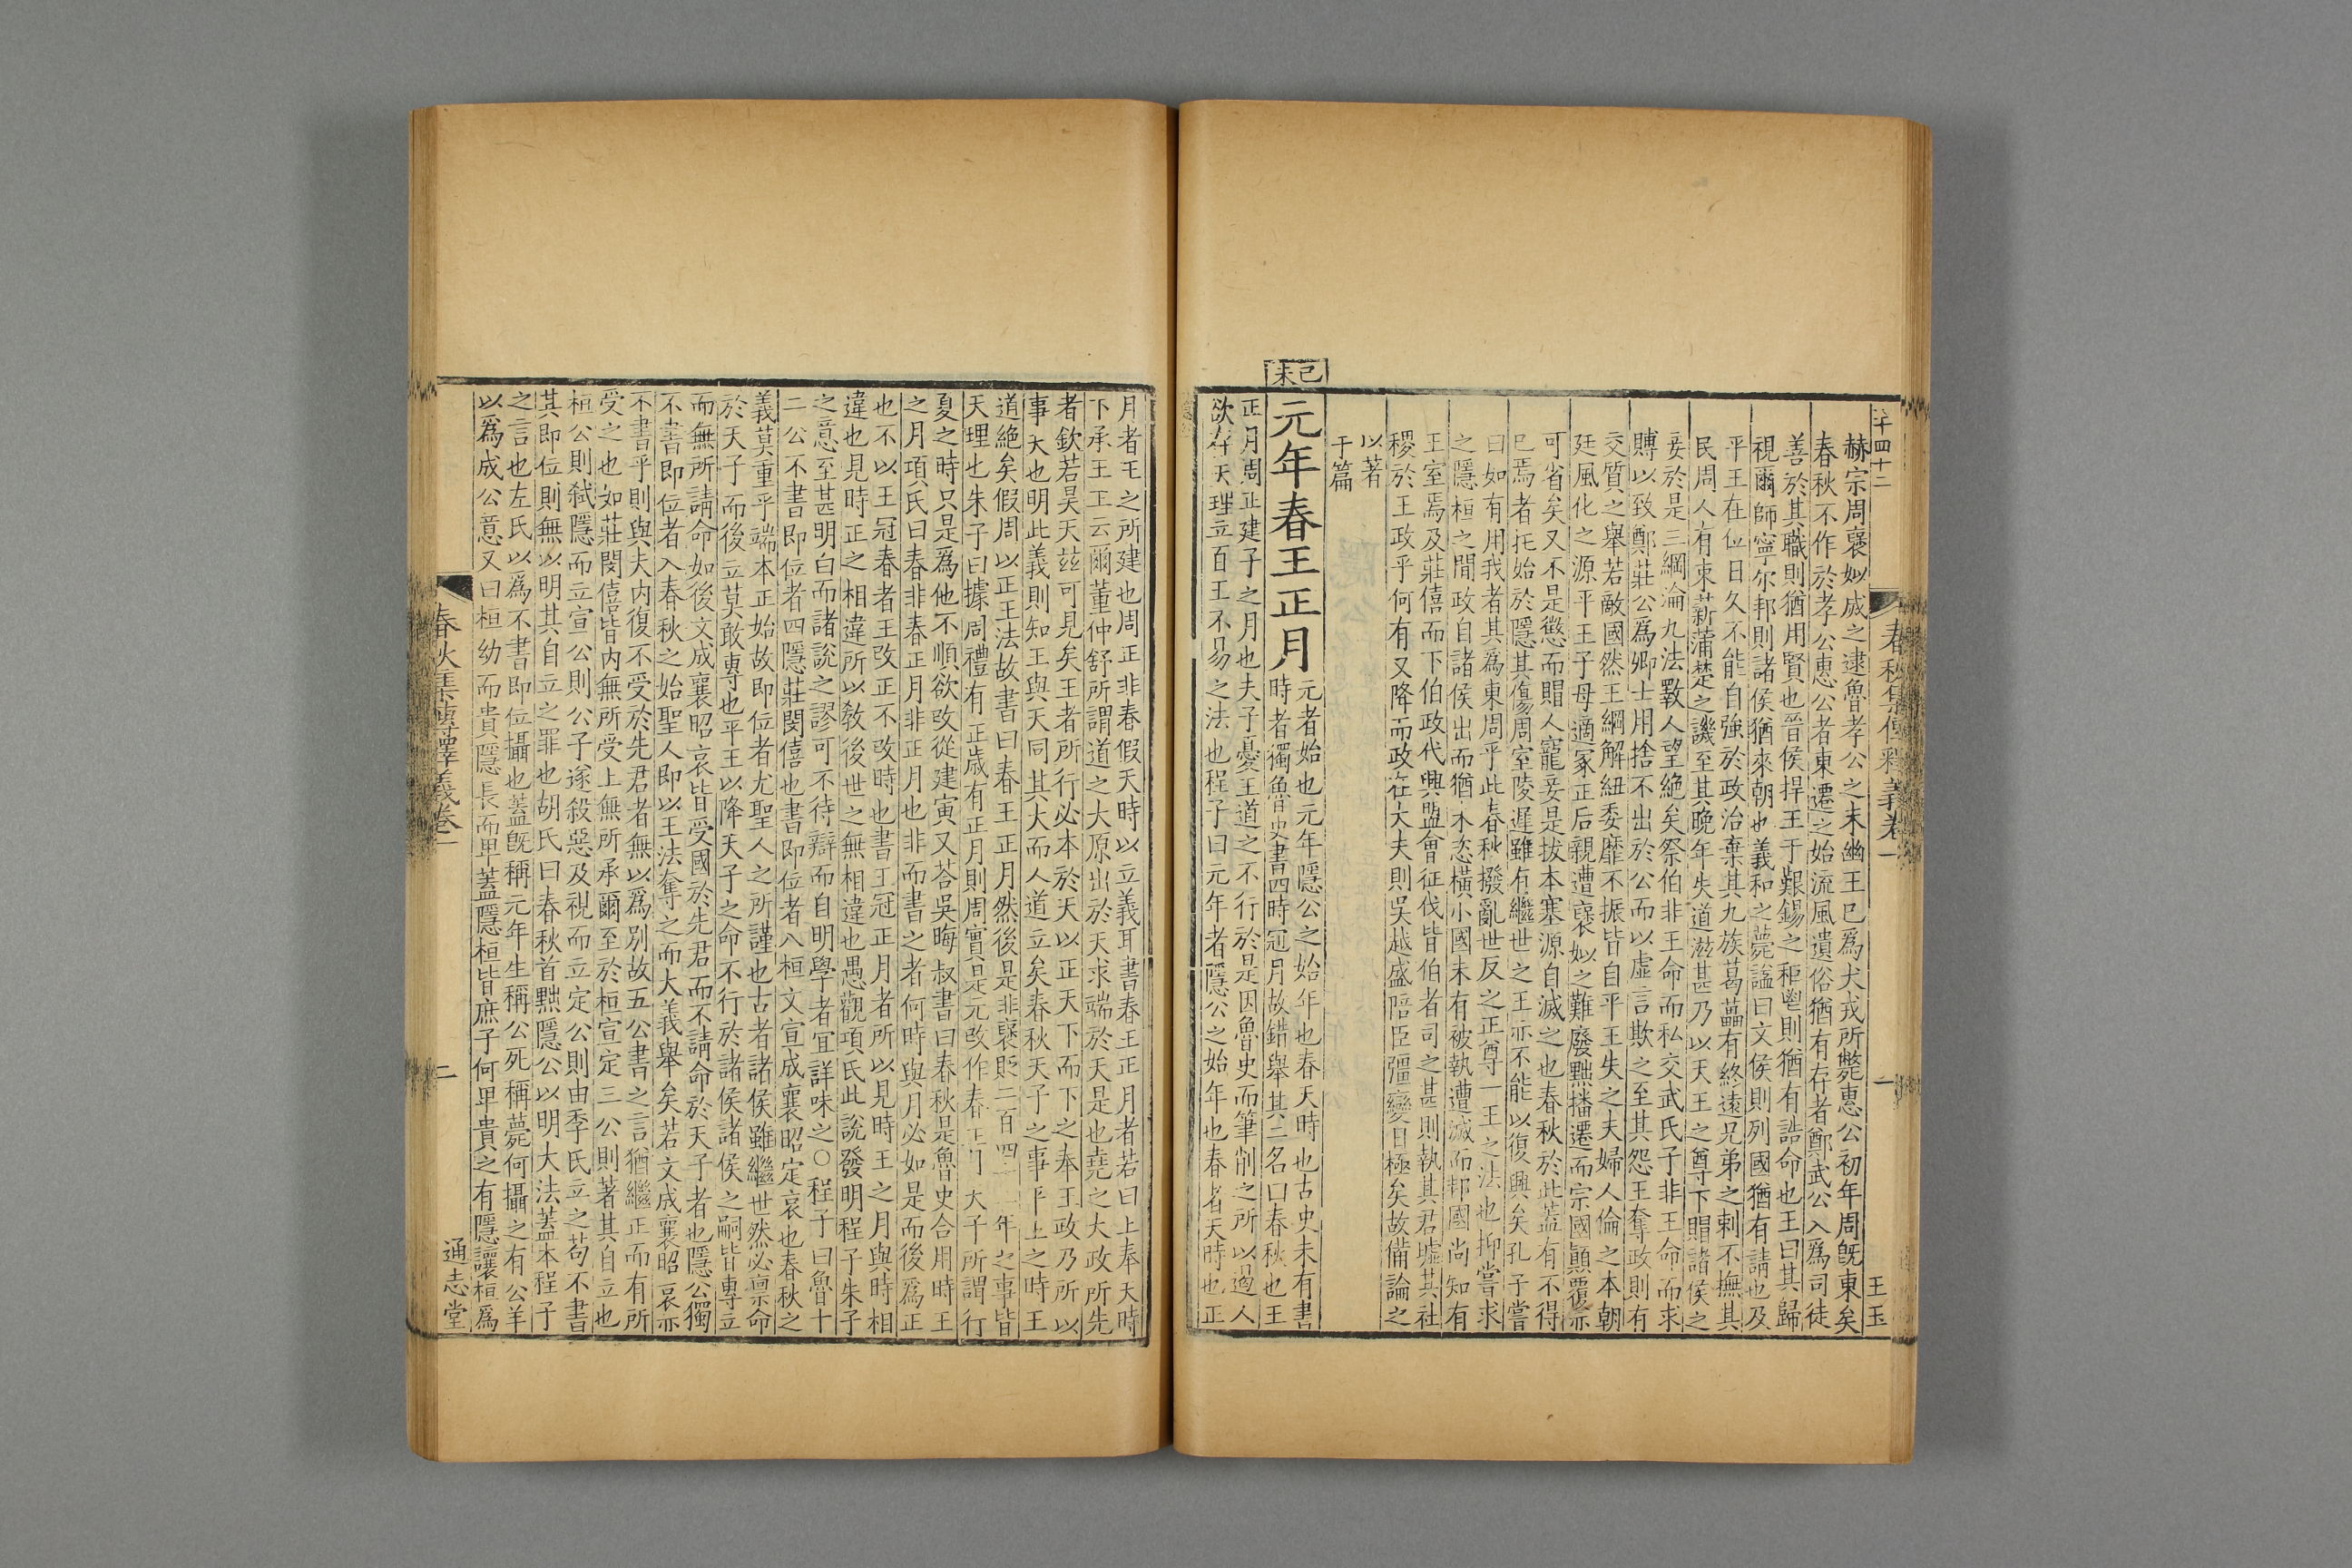 廿四十二
春秋集傳釋義卷一
一
王玉
赫宗周褒姒烕之逮魯孝公之末幽王已爲犬戎所斃惠公初年周旣東矣
春秋不作於孝公惠公者東遷之始流風遺俗猶有存者鄭武公入爲司徒
善於其職則猶用賢也晉侯捍王于艱錫之秬鬯則猶有誥命也王曰其歸
視爾師寧尔邦則諸侯猶來朝也義和之薨諡曰文侯則列國猶有請也及
平王在位日久不能自強於政治棄其九族葛藟有終遠兄弟之刺不撫其
民周人有束薪蒲楚之譏至其晚年失道滋甚乃以天王之尊下賵諸侯之
妾於是三綱淪九法斁人望絶矣祭伯非王命而私交武氏子非王命而求
賻以致鄭莊公爲卿士用捨不出於公而以虛言欺之至其怨王奪政則有
交質之舉若敵國然王綱解紐委靡不振皆自平王失之夫婦人倫之本朝
廷風化之源平王子母適冢正后親遭褒姒之難廢黜播遷而宗國顚覆亦
可省矣又不是懲而賵人寵妾是拔本塞源自滅之也春秋於此蓋有不得
已焉者托始於隱其傷周室陵遲雖有繼世之王亦不能以復興矣孔子嘗
曰如有用我者其爲東周乎此春秋撥亂世反之正尊一王之法也抑嘗求
之隱桓之閒政自諸侯出而猶未恣橫小國未有被執遭滅而邦國尚知有
王室焉及莊僖而下伯政代興盟會征伐皆伯者司之甚則執其君墟其社
稷於王政乎何有又降而政在大夫則吳越盛陪臣彊變日極矣故備論之
以著
于篇
己未
元年春王正月
元者始也元年隱公之始年也春天時也古史未有書
時者獨魯史書四時冠月故錯舉其二名曰春秋也王
正月周正建子之月也夫子憂王道之不行於是因魯史而筆削之所以遏人
欲存天理立百王不易之法也程子曰元年者隱公之始年也春者天時也正
月者王之所建也周正非春假天時以立義耳書春王正月者若曰上奉天時
下承王王云爾董仲舒所謂道之大原出於天求端於天是也堯之大政所先
者欽若昊天兹可見矣王者所行必本於天以正天下而下之奉王政乃所以
事天也明此義則知王與天同其大而人道立矣春秋天子之事平上之時王
道絶矣假周以正王法故書曰春王正月然後是非褒貶二百四二一年之事皆
天理也朱子曰據周禮有正歲有正月則周實是元改作春正月夫子所謂行
夏之時只是爲他不順欲改從建寅又荅吳晦叔書曰春秋是魯史合用時王
之月項氏曰春非春正月非正月也非而書之者何時與月必如是而後爲正
也不以王冠春者王改正不改時也書王冠正月者所以見時王之月與時相
違也見時正之相違所以敎後世之無相違也愚觀項氏此說發明程子朱子
之意至甚明白而諸說之謬可不待辯而自明學者宜詳味之○程子曰魯十
二公不書即位者四隱莊閔僖也書即位者八桓文宣成襄昭定哀也春秋之
義莫重乎端本正始故即位者尤聖人之所謹也古者諸侯雖繼世然必禀命
於天子而後立莫敢專也平王以降天子之命不行於諸侯諸侯之嗣皆專立
而無所請命如後文成襄昭哀皆受國於先君而不請命於天子者也隱公獨
不書即位者入春秋之始聖人即以王法奪之而大義舉矣若文成襄昭哀亦
不書乎則與夫内復不受於先君者無以爲別故五公書之言猶繼正而有所
受之也如莊閔僖皆内無所受上無所承爾至於桓宣定三公則著其自立也
桓公則弑隱而立宣公則公子遂殺惡及視而立定公則由季氏立之苟不書
其即位則無以明其自立之罪也胡氏曰春秋首黜隱公以明大法蓋本程子
之言也左氏以爲不書即位攝也蓋旣稱元年生稱公死稱薨何攝之有公羊
以爲成公意又曰桓幼而貴隱長而卑蓋隱桓皆庶子何卑貴之有隱讓桓爲
春秋集傳釋義卷一
二
通志堂